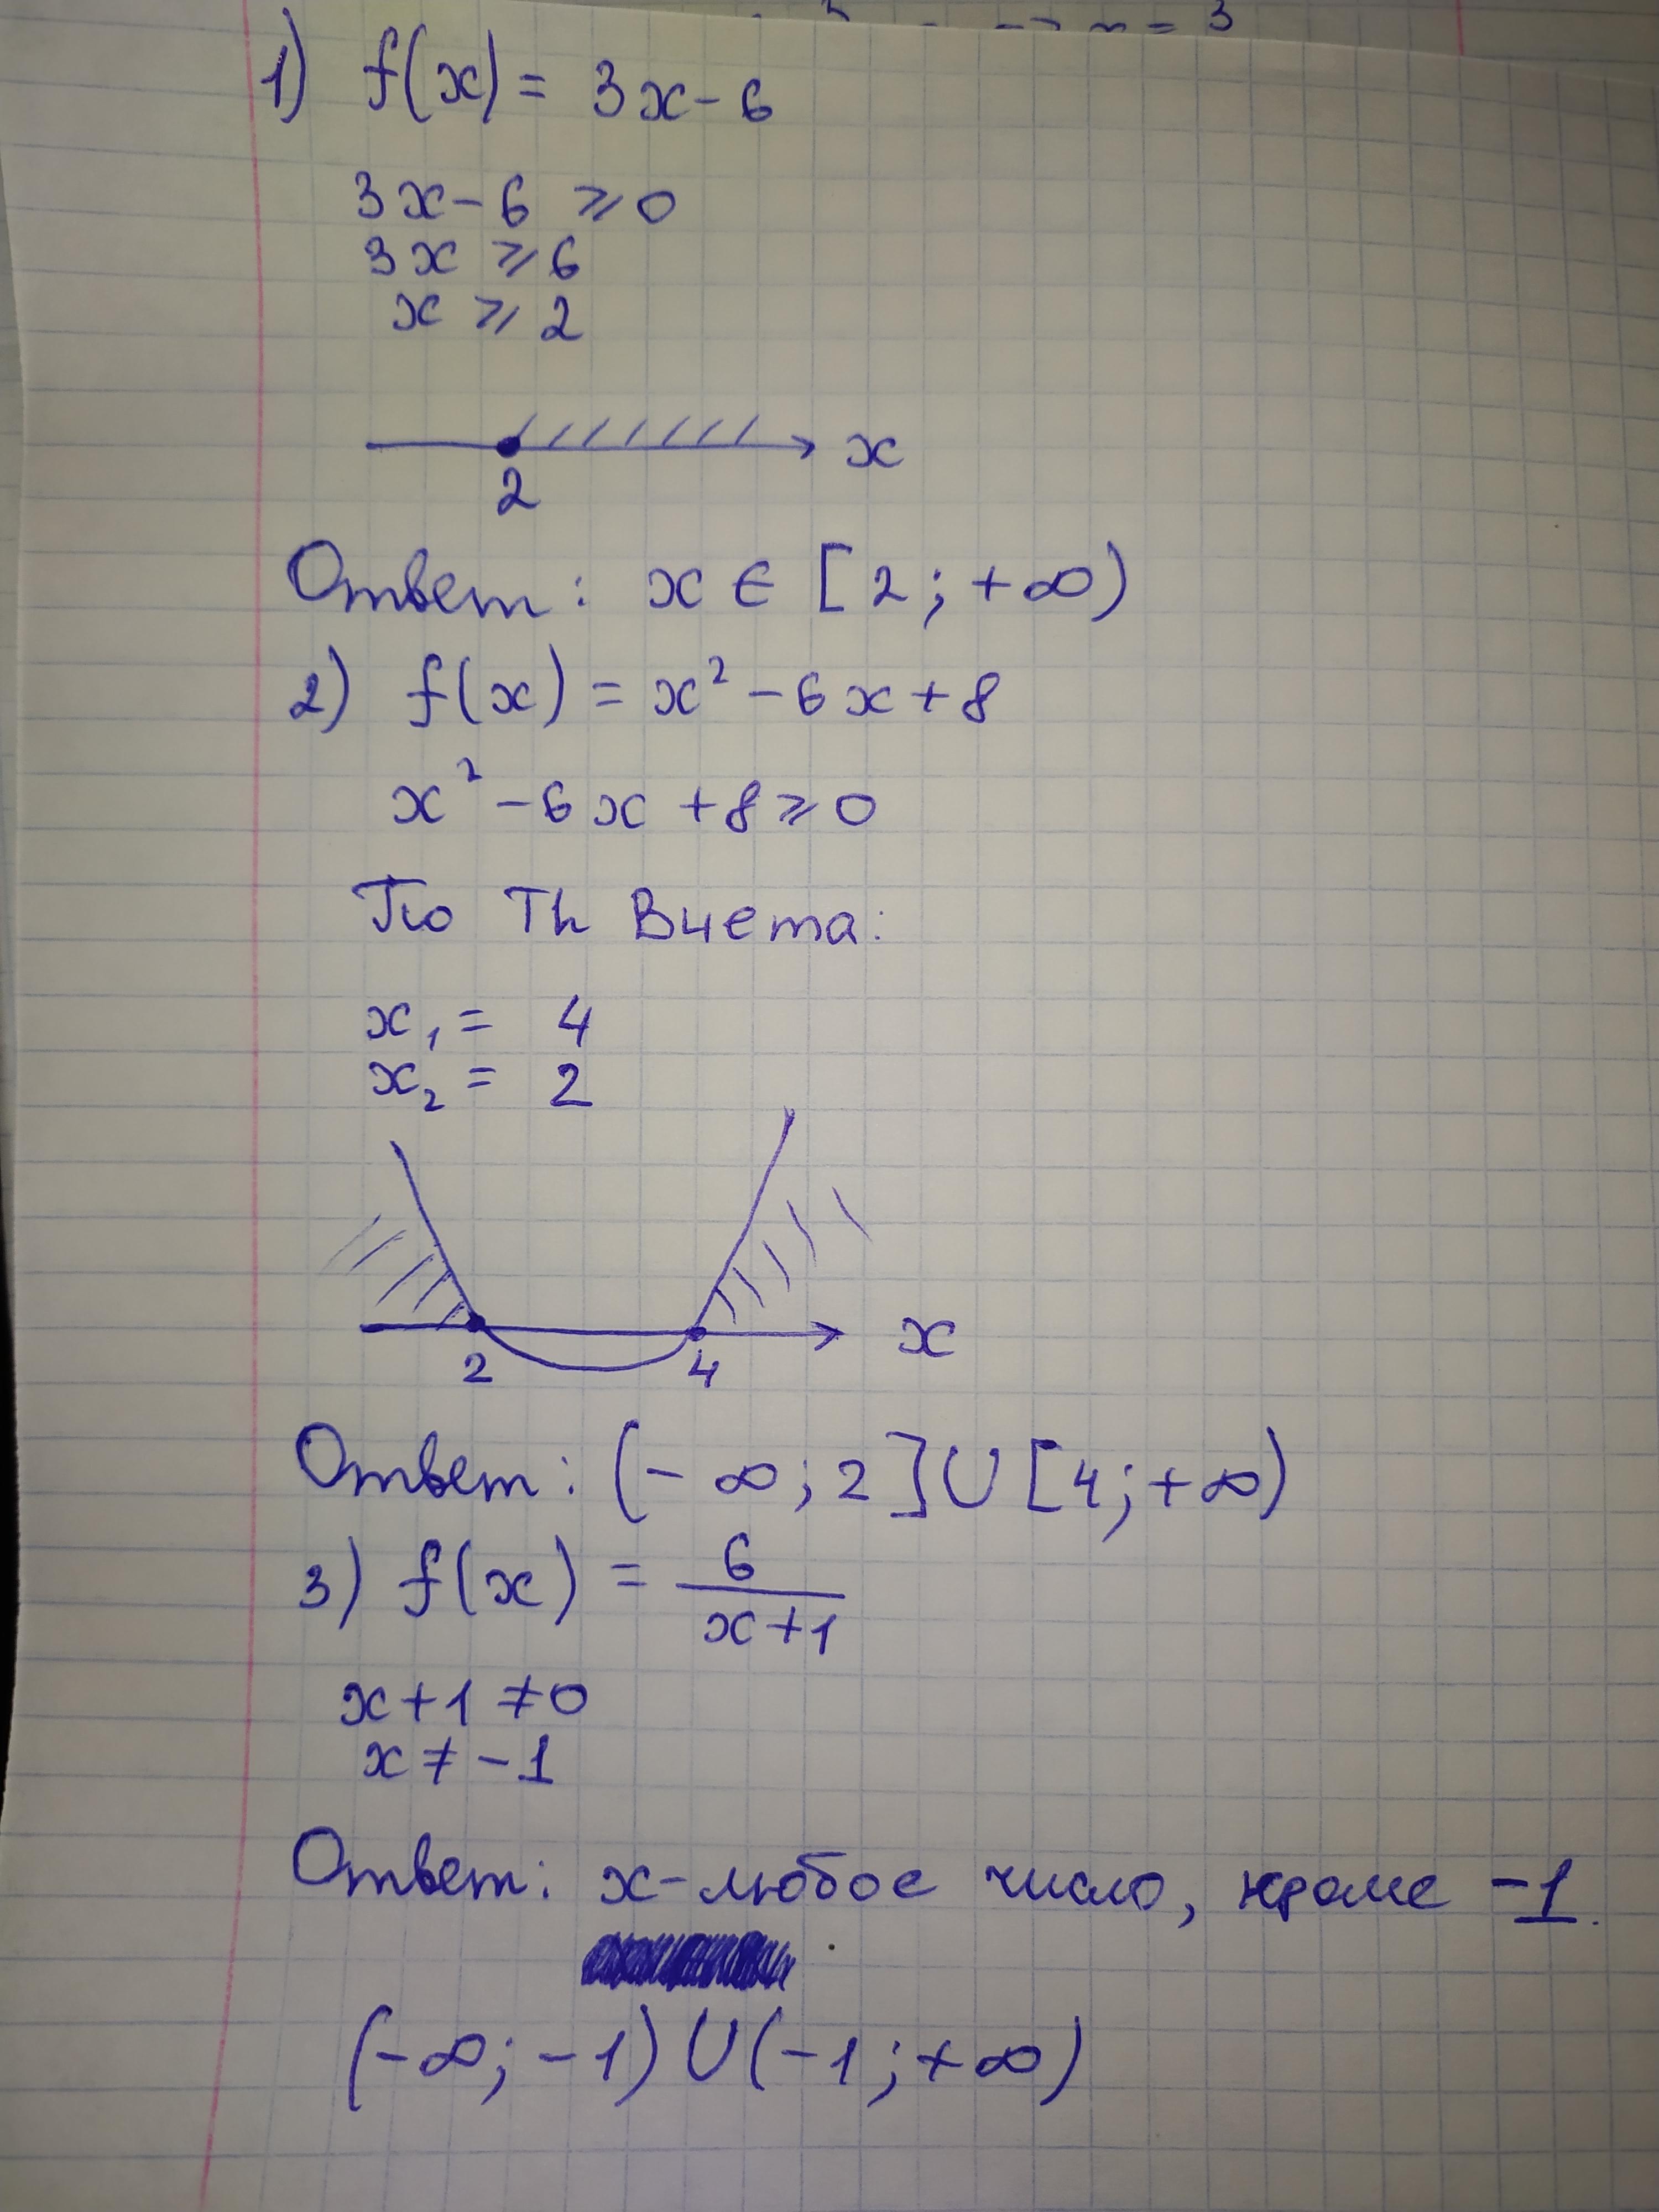 1) f(x) = 3x - 6
3x - 6 ⩾ 0
3x ⩾ 6
x ⩾ 2
x
2
Ответ: x ∈ [2; +∞)
2) f(x) = x² - 6x + 8
x² - 6x + 8 ⩾ 0
По Th Виета:
x₁ = 4
x₂ = 2
x
2 4
Ответ: (-∞; 2] ∪ [4; +∞)
3) f(x) = 6/(x+1)
x + 1 ≠ 0
x ≠ -1
Ответ: x - любое число, кроме -1.
(-∞; -1) ∪ (-1; +∞)